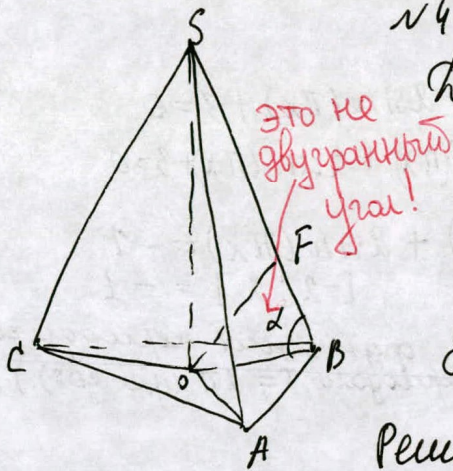 S
№4
это не
двугранный
угол!
F
α
C
O
B
A
Реш